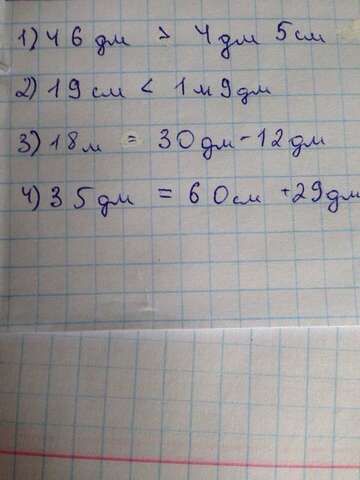 1) 46 дм > 4 дм 5 см
2) 19 см < 1 м 9 дм
3) 18 м = 30 дм - 12 дм
4) 35 дм = 60 см + 29 дм